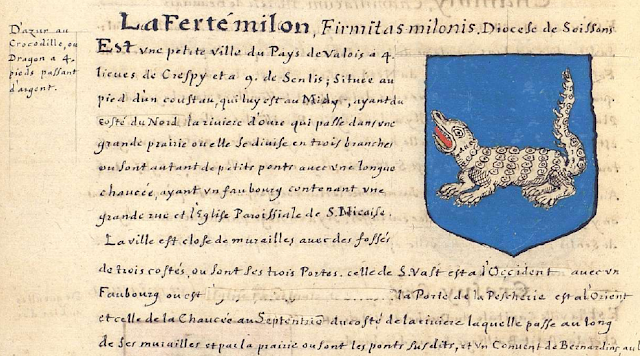 D'azur au
Crocodille, ou
Dragon a 4.
pieds passant
d'argent.
La Ferté milon, Firmitas milonis. Diocese de Soissons
Est vne petite ville du Pays de Valois a 4.
lieues de Crespy et a 9. de Senlis; Située au
pied d'un coustau, qui luy est au Midy, ayant du
costé du Nord la riviere d'ourc qui passe dans vne
grande prairie ou elle se divise en trois branches
ou sont autant de petits ponts avec vne longue
chaucée, ayant vn faubourg contenant vne
grande rue et l'Eglise Paroissiale de S. Nicaise.
La ville est close de murailles avec des fossés
de trois costés, ou sont ses trois Portes. celle de S. Vast est a l'Occident avec vn
Faubourg ou est la Porte de la Pescherie est a l'Orient
et celle de la Chaucée au Septentriō du costé de la riviere laquelle passe au long
de ses murailles et par la prairie ou sont les ponts susdits, et vn Couuent de Bernardins, au